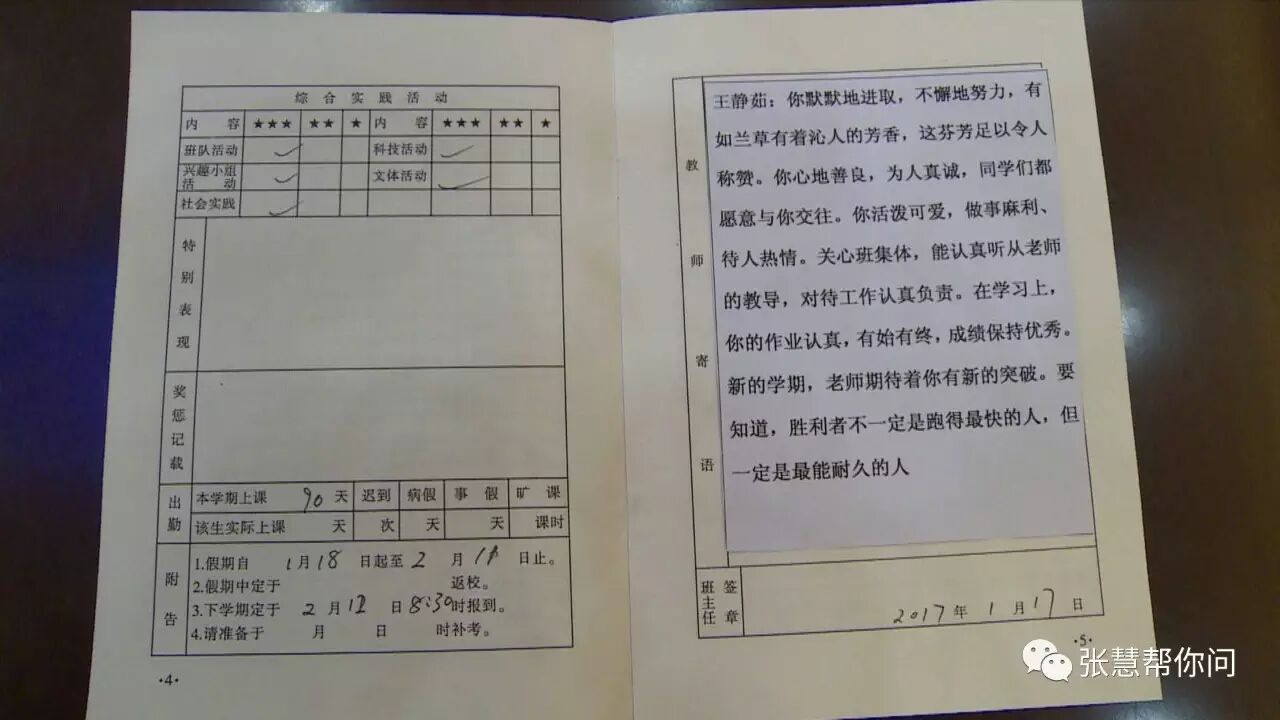 综合实践活动
内容 ★★★ ★★ ★ 内容 ★★★ ★★ ★
班队活动 ✓ 科技活动 ✓
兴趣小组活动 ✓ 文体活动 ✓
社会实践 ✓
特别表现
奖惩记载
出勤
本学期上课 90 天 迟到 病假 事假 旷课
该生实际上课 天 次 天 天 课时
附告
1.假期自 1月18 日起至 2 月 11 日止。
2.假期中定于 返校。
3.下学期定于 2 月 12 日 8:30时报到。
4.请准备于 月 日 时补考。
·4·
教师寄语
王静茹：你默默地进取，不懈地努力，有
如兰草有着沁人的芳香，这芬芳足以令人
称赞。你心地善良，为人真诚，同学们都
愿意与你交往。你活泼可爱，做事麻利、
待人热情。关心班集体，能认真听从老师
的教导，对待工作认真负责。在学习上，
你的作业认真，有始有终，成绩保持优秀。
新的学期，老师期待着你有新的突破。要
知道，胜利者不一定是跑得最快的人，但
一定是最能耐久的人
班主任签章
2017 年 1 月 17 日
·5·
张慧帮你问